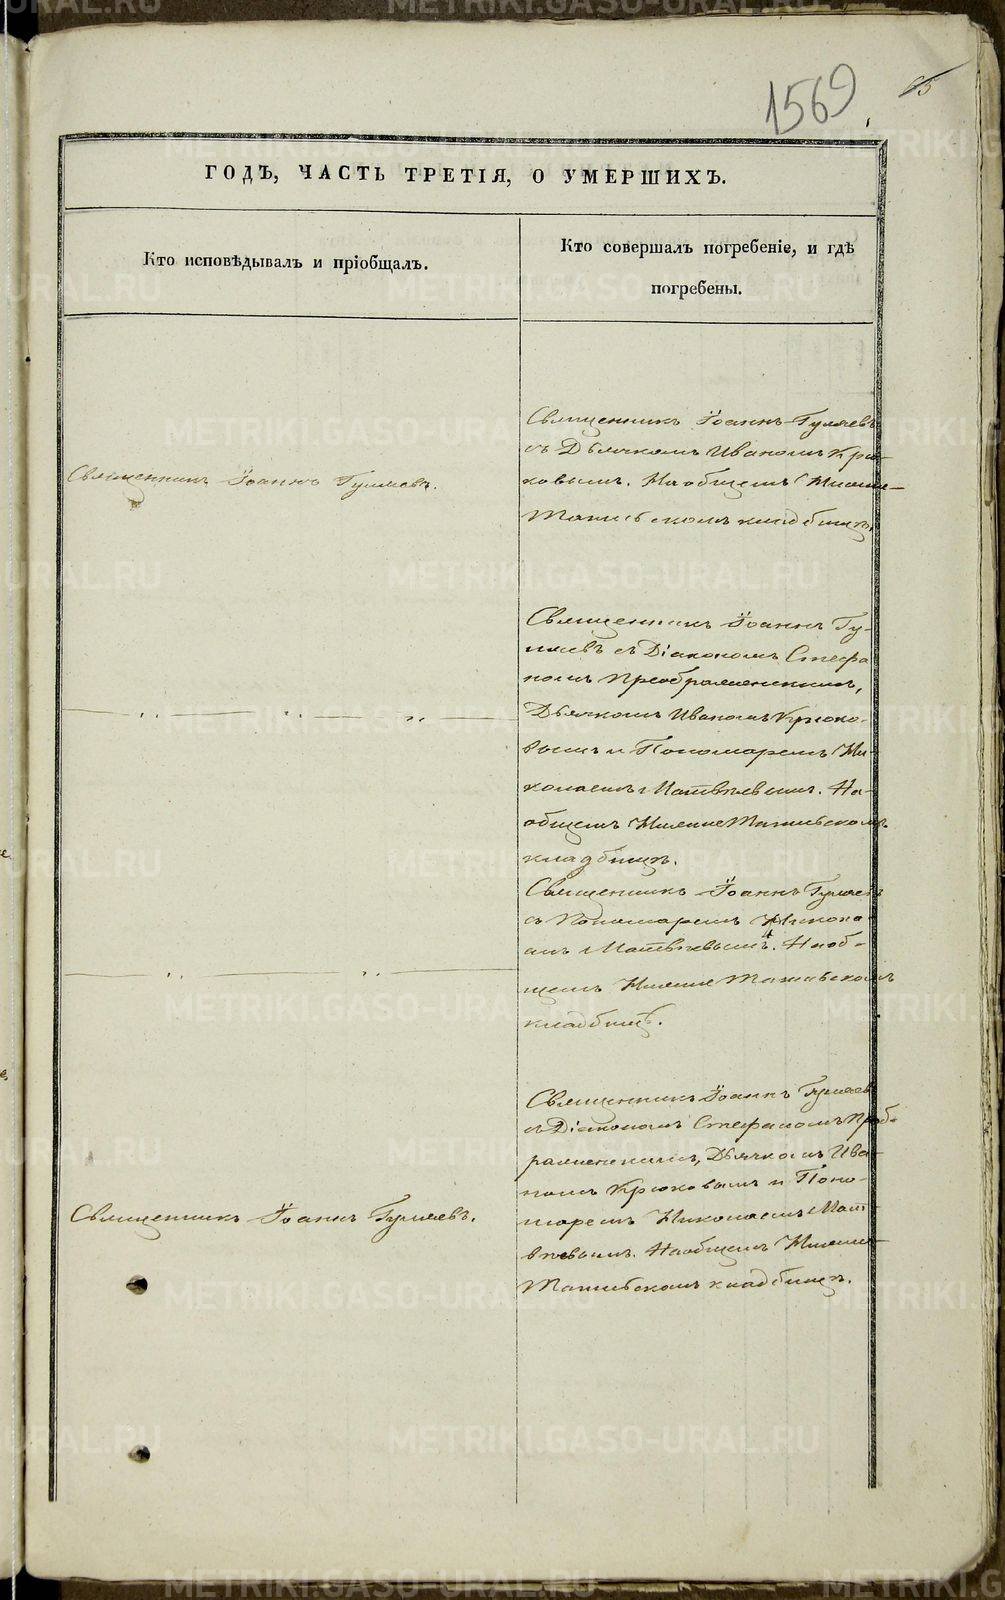 1569
ГОДЪ, ЧАСТЬ ТРЕТІЯ, О УМЕРШИХЪ.
Кто исповѣдывалъ и пріобщалъ.
Кто совершалъ погребеніе, и гдѣ
погребены.
Священникъ Іоаннъ Гуляевъ.
Священникъ Іоаннъ Гуляевъ
съ Дьячкомъ Иваномъ Крю-
ковымъ. На общемъ Нижне-
Тагильскомъ кладбищѣ.
Священникъ Іоаннъ Гу-
ляевъ съ Діакономъ Стефа
номъ Преображенскимъ,
Дьячкомъ Иваномъ Крюко-
вымъ и Пономаремъ Ни-
колаемъ Матвѣевымъ. На
общемъ Нижне Тагильскомъ
кладбищѣ.
Священникъ Іоаннъ Гуляевъ
съ Пономаремъ Никола-
емъ Матвѣевымъ. На об-
щемъ Нижне Тагильскомъ
кладбищѣ.
Священникъ Іоаннъ Гуляевъ.
Священникъ Іоаннъ Гуляевъ
съ Діакономъ Стефаномъ Преоб-
раженскимъ, Дьячкомъ Ива-
номъ Крюковымъ и Поно-
маремъ Николаемъ Мат-
вѣевымъ. На общемъ Нижне-
Тагильскомъ кладбищѣ.
METRIKI.GASO-URAL.RU